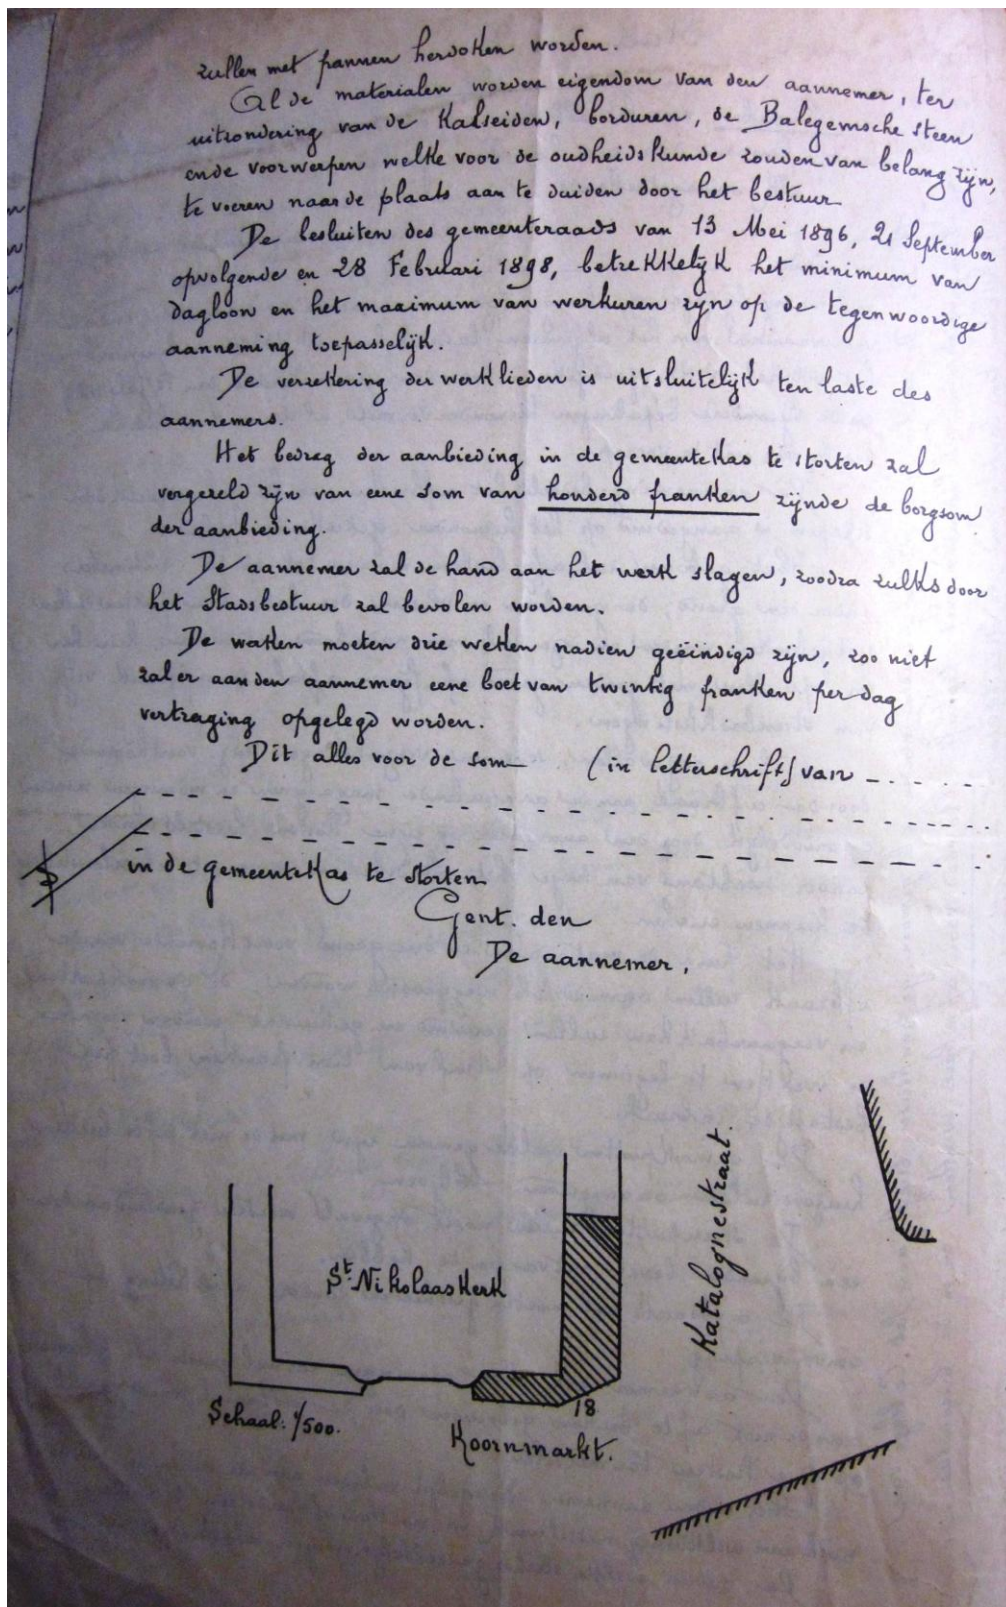 zullen met pannen herdoken worden.
Al de materialen worden eigendom van den aannemer, ter
uitzondering van de Kalseiden, borduren, de Balegemsche steen
en de voorwerpen welke voor de oudheidskunde zouden van belang zijn,
te voeren naar de plaats aan te duiden door het bestuur
De besluiten des gemeenteraads van 13 Mei 1896, 21 September
opvolgende en 28 Februari 1898, betrekkelijk het minimum van
dagloon en het maximum van werkuren zijn op de tegenwoordige
aanneming toepasselijk.
De verzekering der werklieden is uitsluitelijk ten laste des
aannemers.
Het bedrag der aanbieding in de gemeentekas te storten zal
vergezeld zijn van eene som van honderd franken zijnde de borgsom
der aanbieding.
De aannemer zal de hand aan het werk slagen, zoodra zulks door
het Stadsbestuur zal bevolen worden.
De werken moeten drie weken nadien geëindigd zijn, zoo niet
zal er aan den aannemer eene boet van twintig franken per dag
vertraging opgelegd worden.
Dit alles voor de som (in letterschrift) van
in de gemeentekas te storten
Gent. den
De aannemer,
Katalognestraat.
St Nikolaaskerk
18
Schaal: 1/500.
Koornmarkt.